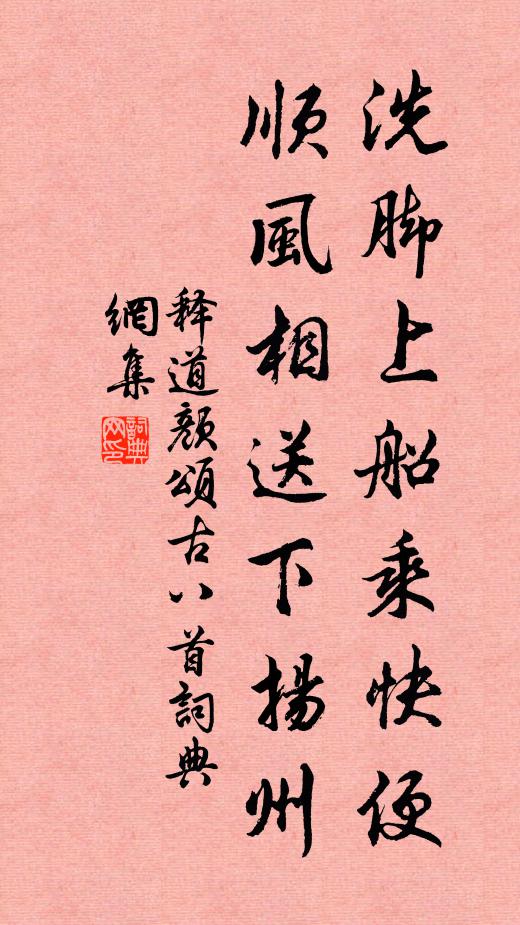 洗脚上船乘快便
順風相送下揚州
释道颜頌古八首詞典
網集
詞典
网印